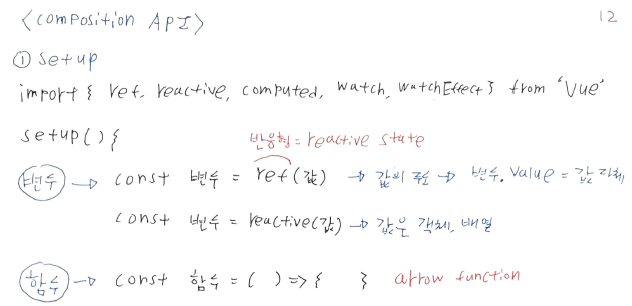 <Composition API> 12
① setup
import { ref, reactive, computed, watch, watchEffect } from 'Vue'
setup() {
반응형 = reactive state
변수 → const 변수 = ref(값) → 값의 주소 → 변수.value = 값 자체
const 변수 = reactive(값) → 값은 객체, 배열
함수 → const 함수 = ( ) => { } arrow function